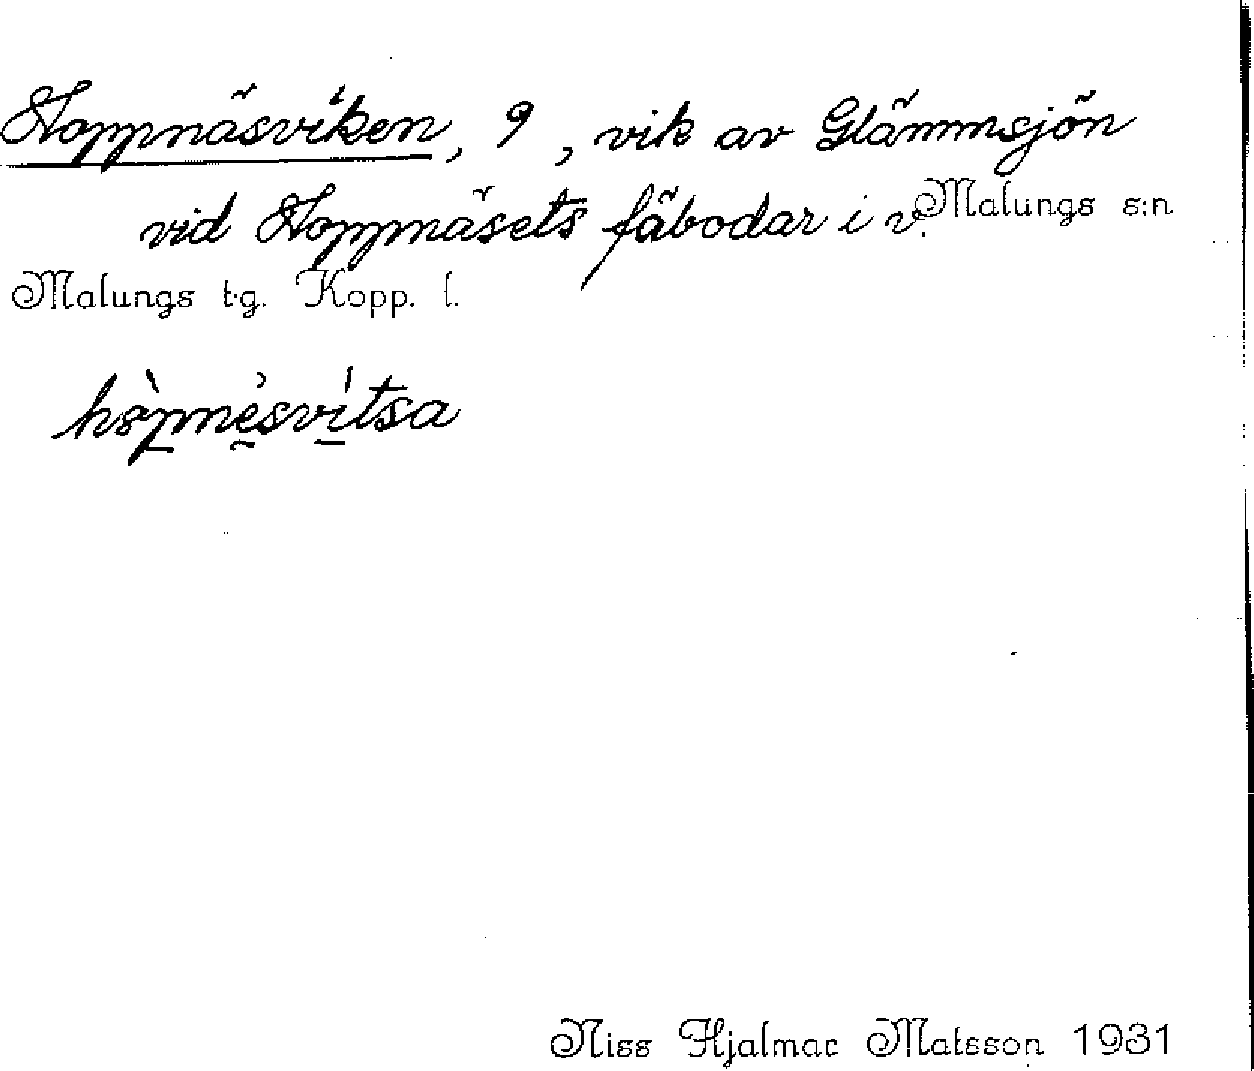 Hoppnäsviken, 9, vik av Glämmsjön
vid Hoppnäsets fäbodar i v. Malungs s:n
Malungs t.g. Kopp. l.
Niss Hjalmar Matsson 1931